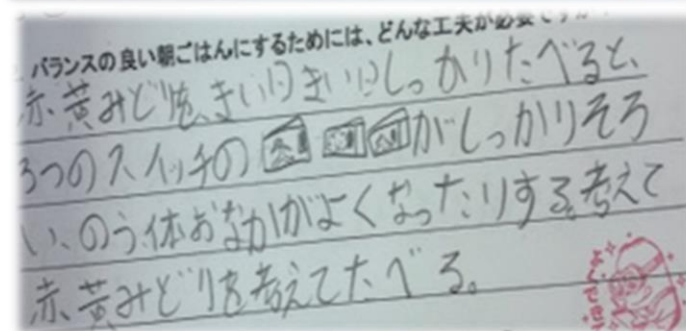 バランスの良い朝ごはんにするためには、どんな工夫が必要ですか
赤黄みどりを、きいりきいりしっかりたべると、
3つのスイッチの がしっかりそろ
い、のう体おなかがよくなったりする。考えて
赤黄みどりを考えてたべる。
よくでき